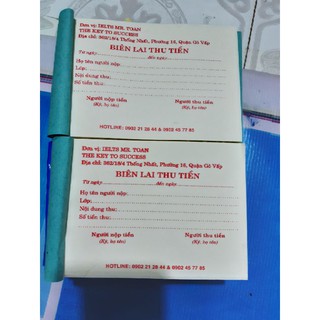 Đơn vị: IELTS MR. TOAN
THE KEY TO SUCCESS
Địa chỉ: 362/18/4 Thống Nhất, Phường 16, Quận Gò Vấp
BIÊN LAI THU TIỀN
Từ ngày đến ngày
Họ tên người nộp:
Lớp:
Nội dung thu:
Số tiền thu:
Người nộp tiền Người thu tiền
(Ký, họ tên) (Ký, họ tên)
HOTLINE: 0902 21 28 44 & 0902 45 77 83
Đơn vị: IELTS MR. TOAN
THE KEY TO SUCCESS
Địa chỉ: 362/18/4 Thống Nhất, Phường 16, Quận Gò Vấp
BIÊN LAI THU TIỀN
Từ ngày đến ngày
Họ tên người nộp:
Lớp:
Nội dung thu:
Số tiền thu:
Người nộp tiền Người thu tiền
(Ký, họ tên) (Ký, họ tên)
HOTLINE: 0902 21 28 44 & 0902 45 77 83